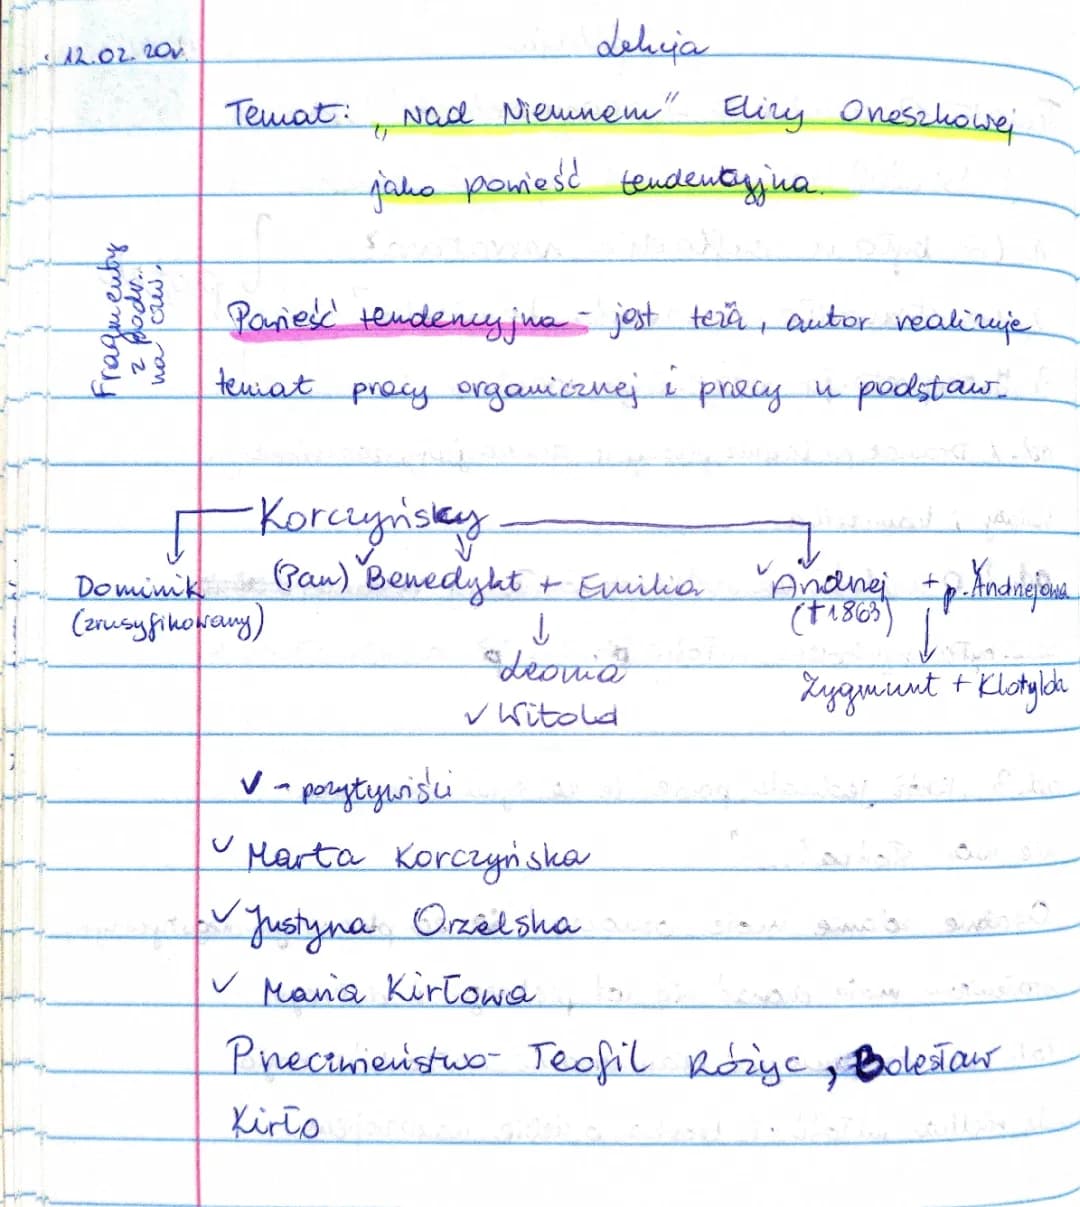 12.02.20r.
Lekcja
Temat: „Nad Niemnem" Elizy Orzeszkowej
jako powieść tendencyjna.
Fragmenty
z podr.
na czw.
Powieść tendencyjna - jest tezą, autor realizuje
temat pracy organicznej i pracy u podstaw.
Korczyńscy
Dominik (Pan) Benedykt + Emilia Andrzej + p. Andrzejowa
(zrusyfikowany) (†1863)
Leonia Zygmunt + Klotylda
✓ Witold
✓ - pozytywiści
✓ Marta Korczyńska
✓ Justyna Orzelska
✓ Maria Kirłowa
Przeciwieństwo - Teofil Różyc, Bolesław
Kirło